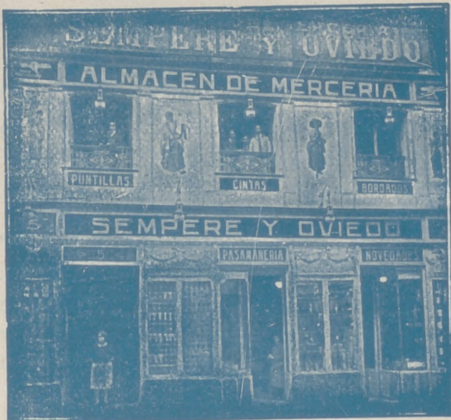 SEMPERE Y OVIEDO
ALMACEN DE MERCERIA
PUNTILLAS
CINTAS
BORDADOS
SEMPERE Y OVIEDO
5
PASAMANERIA
NOVEDADES